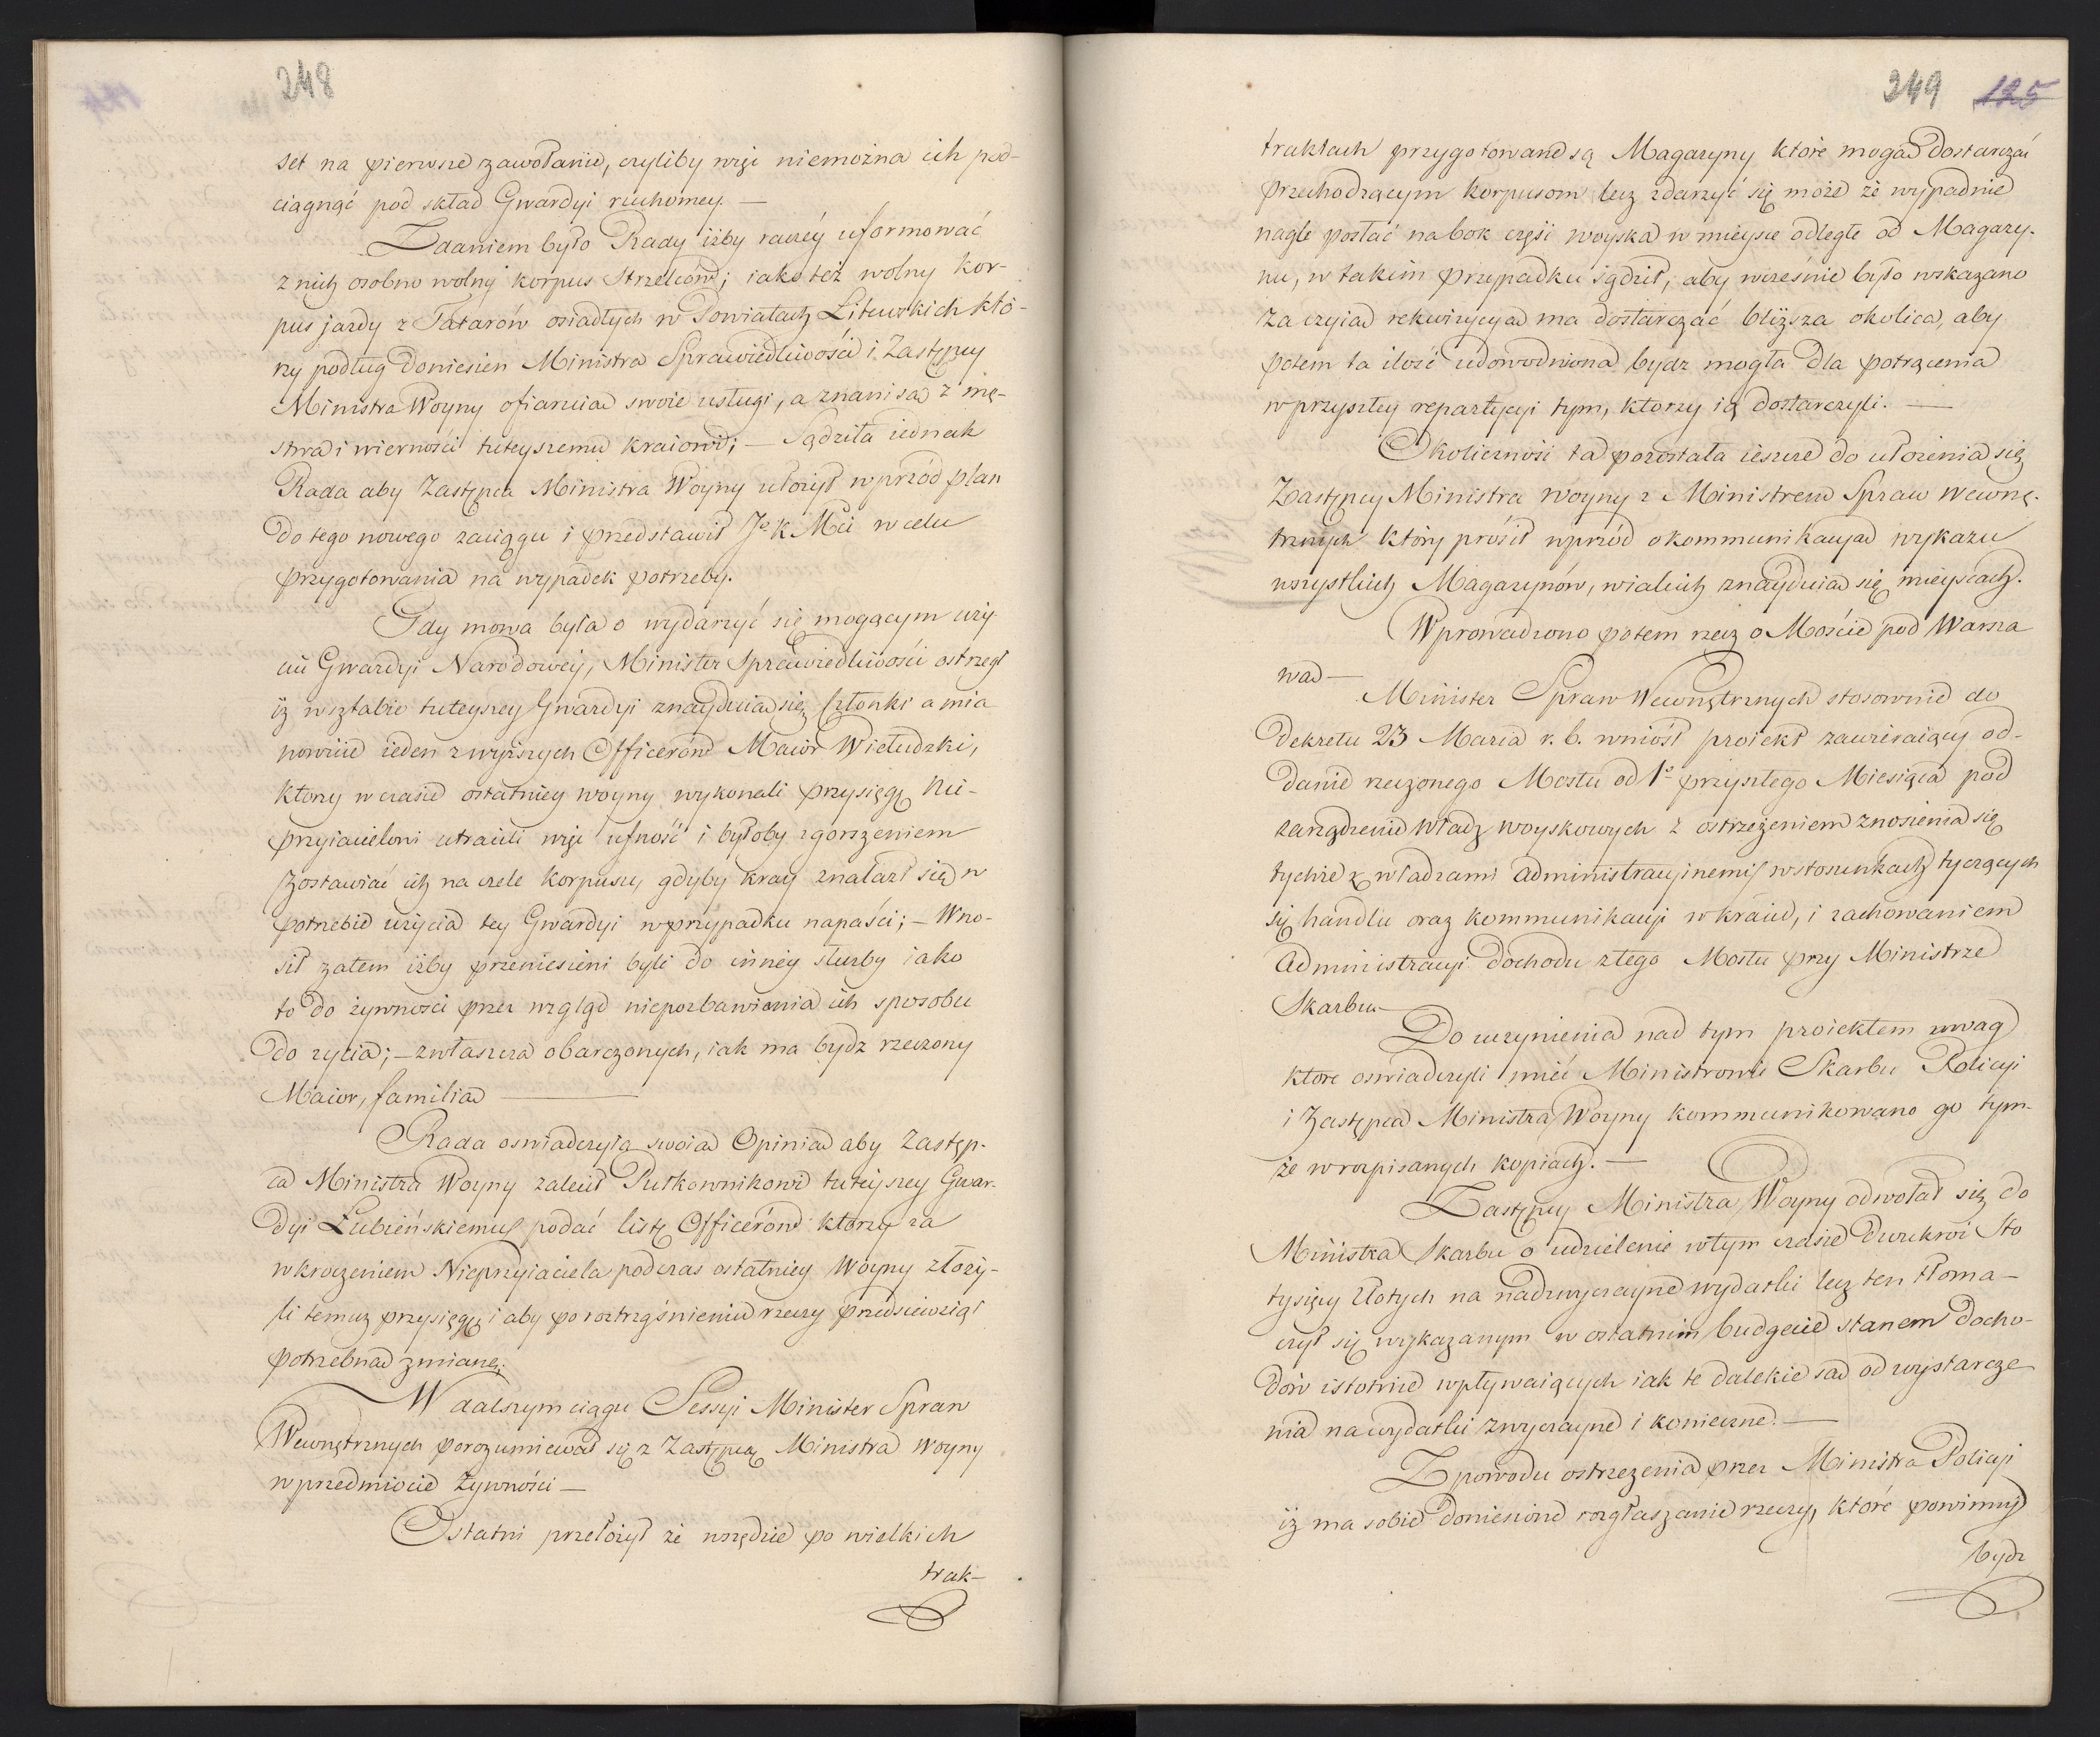 248
set na pierwsze zawołanie, czyliby więc niemożna ich pod-
ciągnąć pod skład Gwardyi ruchomey. —
Zdaniem było Rady iżby raczéy uformować
z nich osobno wolny korpus Strzelców; iako też wolny kor-
pus jazdy z Tatarów osiadłych w Powiatach Litewskich któ-
rzy podług doniesien Ministra Sprawiedliwości i Zastępcy
Ministra Woyny ofiaruią swoie usługi, a znani są z mę-
stwa i wierności tuteyszemu kraiowi; — Sądziła iednak
Rada aby Zastępca Ministra Woyny ułożył wprzód plan
do tego nowego zaciągu i przedstawił Jo. K Mci w celu
przygotowania na wypadek potrzeby.
Gdy mowa była o wydarzyć się mogącym uży-
ciu Gwardyi Narodowéy, Minister Sprawiedliwości ostrzegł
iż w sztabie tuteyszey Gwardyi znayduią się Członki a mia
nowicie ieden z wyższych Officerów Maior Wieludzki,
ktorzy w czasie ostatniey woyny wykonali przysięgę Nie-
przyiacielowi utracili więc ufność i byłoby zgorszeniem
zostawiać ich na czele korpusu, gdyby kray znalazł się w
potrzebie użycia tey Gwardyi w przypadku napaści; — Wno-
sił zatem iżby przeniesieni byli do innéy służby iako
to do żywności przez wzgląd niepozbawienia ich sposobu
do życia; — zwłaszcza obarczonych, iak ma bydz rzeczony
Maior, familią —
Rada oswiadczyła swoią Opinią aby Zastęp-
ca Ministra Woyny zalecił Pułkownikowi tuteyszey Gwar-
dyi Łubieńskiemu podać listę Officerów ktorzy za
wkroczeniem Nieprzyiaciela podczas ostatniey Woyny złoży-
li temuż przysięgę i aby po roztrząśnieniu rzeczy przedsiewziął
potrzebną zmianę.
W dalszym ciągu Sessyi Minister Spraw
Wewnętrznych porozumiewał się z Zastępcą Ministra Woyny
w przedmiocie Żywności —
Ostatni przełożył że wszędzie po wielkich
trak-
249 125
traktach przygotowane są Magazyny które mogą dostarczać
przechodzącym korpusom lecz zdarzyć się może że wypadnie
nagle posłać na bok części woyska w mieysce odległe od Magazy-
nu, w takim przypadku sądził, aby wcześnie było wskazano
za czyią rekwizycyą ma dostarczać bliższa okolica, aby
potem ta ilość udowodniona bydz mogła dla potrącenia
w przyszłey repartycyi tym, ktorzy ią dostarczyli. —
Okoliczność ta pozostała ieszcze do ułożenia się
Zastępcy Ministra Woyny z Ministrem Spraw Wewnę-
trznych który prosił wprzód o kommunikacyą wykazu
wszystkich Magazynów, w iakich znayduią się mieyscach.
Wprowadzono potem rzecz o Moście pod Warsza
wą —
Minister Spraw Wewnętrznych stosownie do
Dekretu 23 Marca r. b. wniósł proiekt zawieraiący od-
danie rzeczonego Mostu od 1o przyszłego Miesiąca pod
zarządzenie Władz woyskowych z ostrzeżeniem znoszenia się
tychże z władzami administracyinemi w stosunkach tyczących
się handlu oraz kommunikacyi w kraiu, i zachowaniem
administracyi dochodu z tego Mostu przy Ministrze
Skarbu —
Do uczynienia nad tym proiektem uwag
ktore oswiadczyli mieć Ministrowie Skarbu Policyi
i Zastępca Ministra Woyny kommunikowano go tym-
że w rozpisanych kopiach. —
Zastępca Ministra Woyny odwołał się do
Ministra Skarbu o udzielenie w tym czasie dwukroć Sto
tysięcy Złotych na nadzwyczayne wydatki lecz ten tłoma-
czył się wykazanym w ostatnim budgecie stanem docho-
dów istotnie wpływaiących iak te dalekie są od wystarcze
nia na wydatki zwyczayne i konieczne. —
Z powodu ostrzeżenia przez Ministra Policyi
iż ma sobie doniesione rozgłaszanie rzeczy, które powinny
bydz